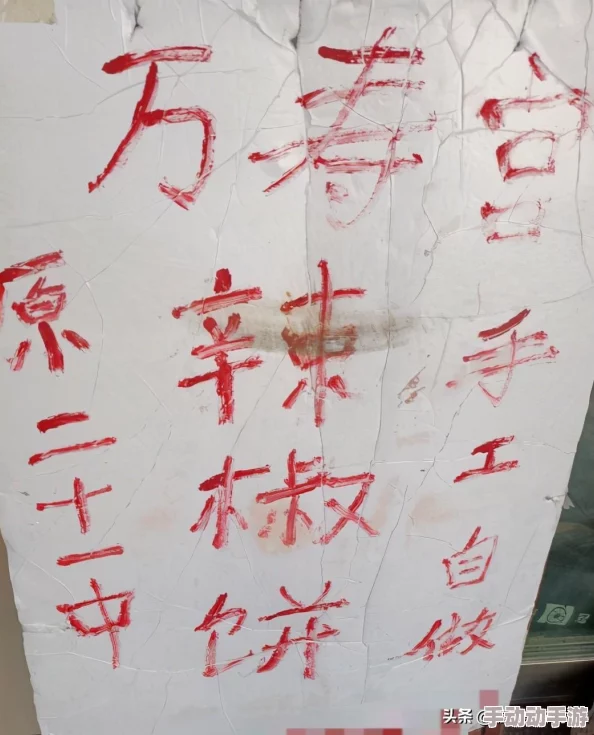 万寿宫
手工自做
辣椒饼
原二十一中
头条@手动动手游